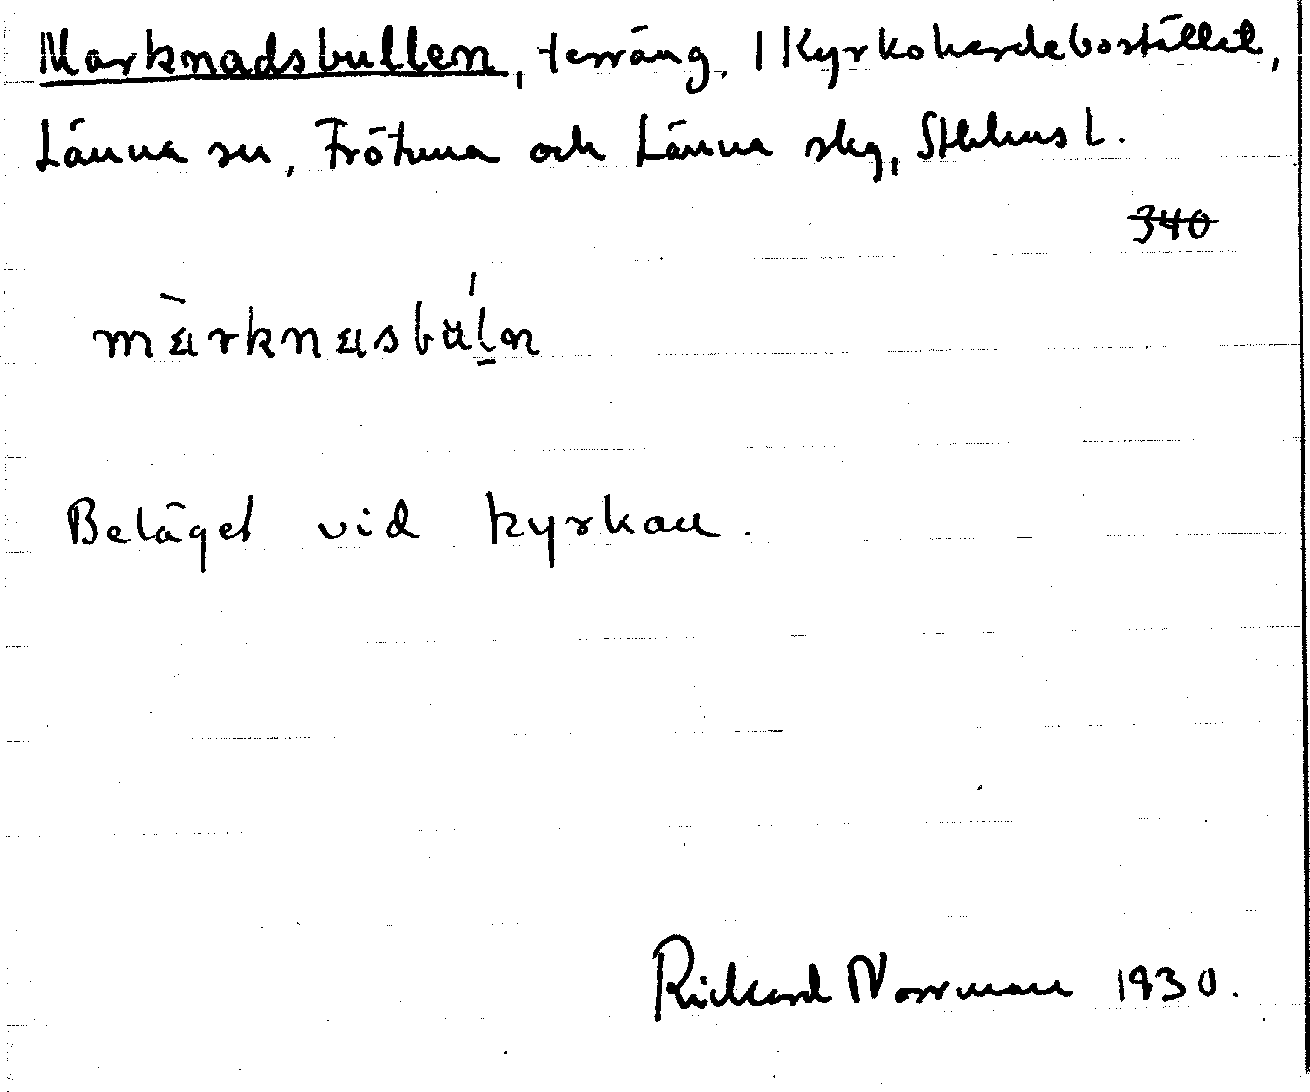 Marknadsbullen, terräng, 1 Kyrkoherdebostället,
Länna sn, Frötuna och Länna skg, Sthlms l.
340
màrknasbúl̠n
Beläget vid kyrkan.
Rickard Norrman 1930.